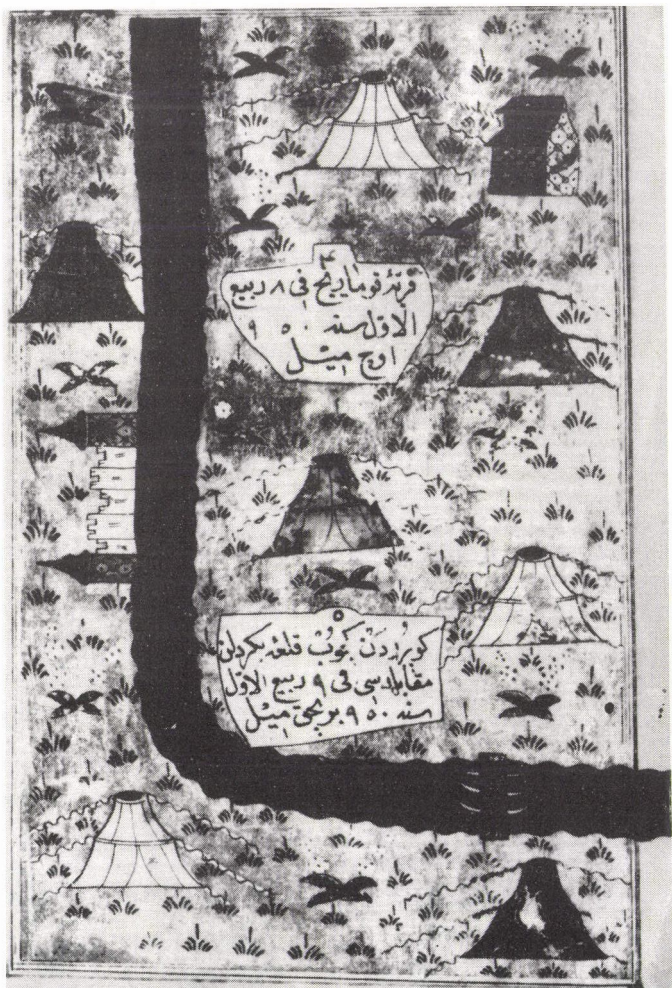 ٤
قریهٔ فی ٨ ربیع
الاول سنه ٩٥٠
اوچ میل
٥
کوپریدن کچوب قلعهٔ بکردلن
مقابله‌سی فی ٩ ربیع الاول
سنه ٩٥٠ بر بچق میل